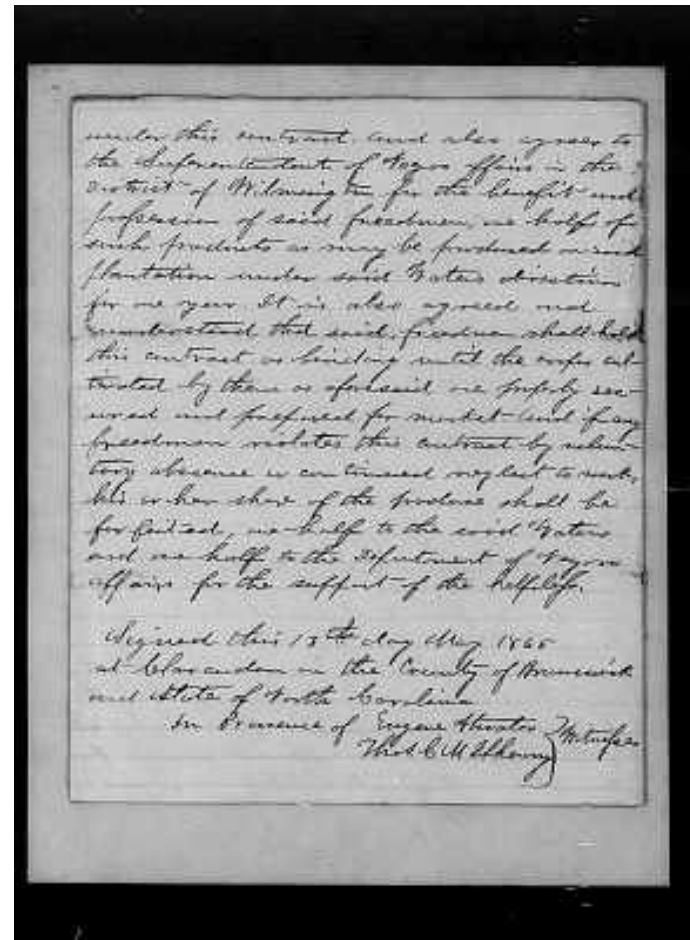 under this contract and also agrees to
the Superintendent of Negro affairs in the
District of Wilmington for the benefit and
possession of said freedmen, one half of
such products as may be produced on said
plantation under said Waters direction
for one year. It is also agreed and
understood that said freedmen shall hold
this contract as binding until the crops cul-
tivated by them as aforesaid are properly sec-
ured and prepared for market and if any
freedman violates this contract by volun-
tary absence or continued neglect to work,
his or her share of the produce shall be
forfeited, one-half to the said Waters
and one half to the Department of Negro
affairs for the support of the helpless.
Signed this 13th day May 1865
at Clarendon in the County of Brunswick
and State of North Carolina
In Presence of Eugene
Thos. C. Witnesses